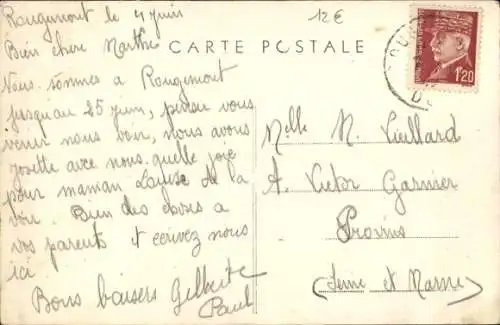 Rougemont le 4 juin
12€
Bien chere Marthe
CARTE POSTALE
1F20
Nous sommes a Rougemont
jusqu'au 25 juin, pensez vous
venir nous voir, nous avons
Josette avec nous. quelle joie
pour maman Louise de la
voir. Bien des choses a
vos parents et ecrivez nous
ici
Bons baisers Gilberte
Paul
Melle M. Vieillard
A. Victor Garnier
Provins
(Seine et Marne)